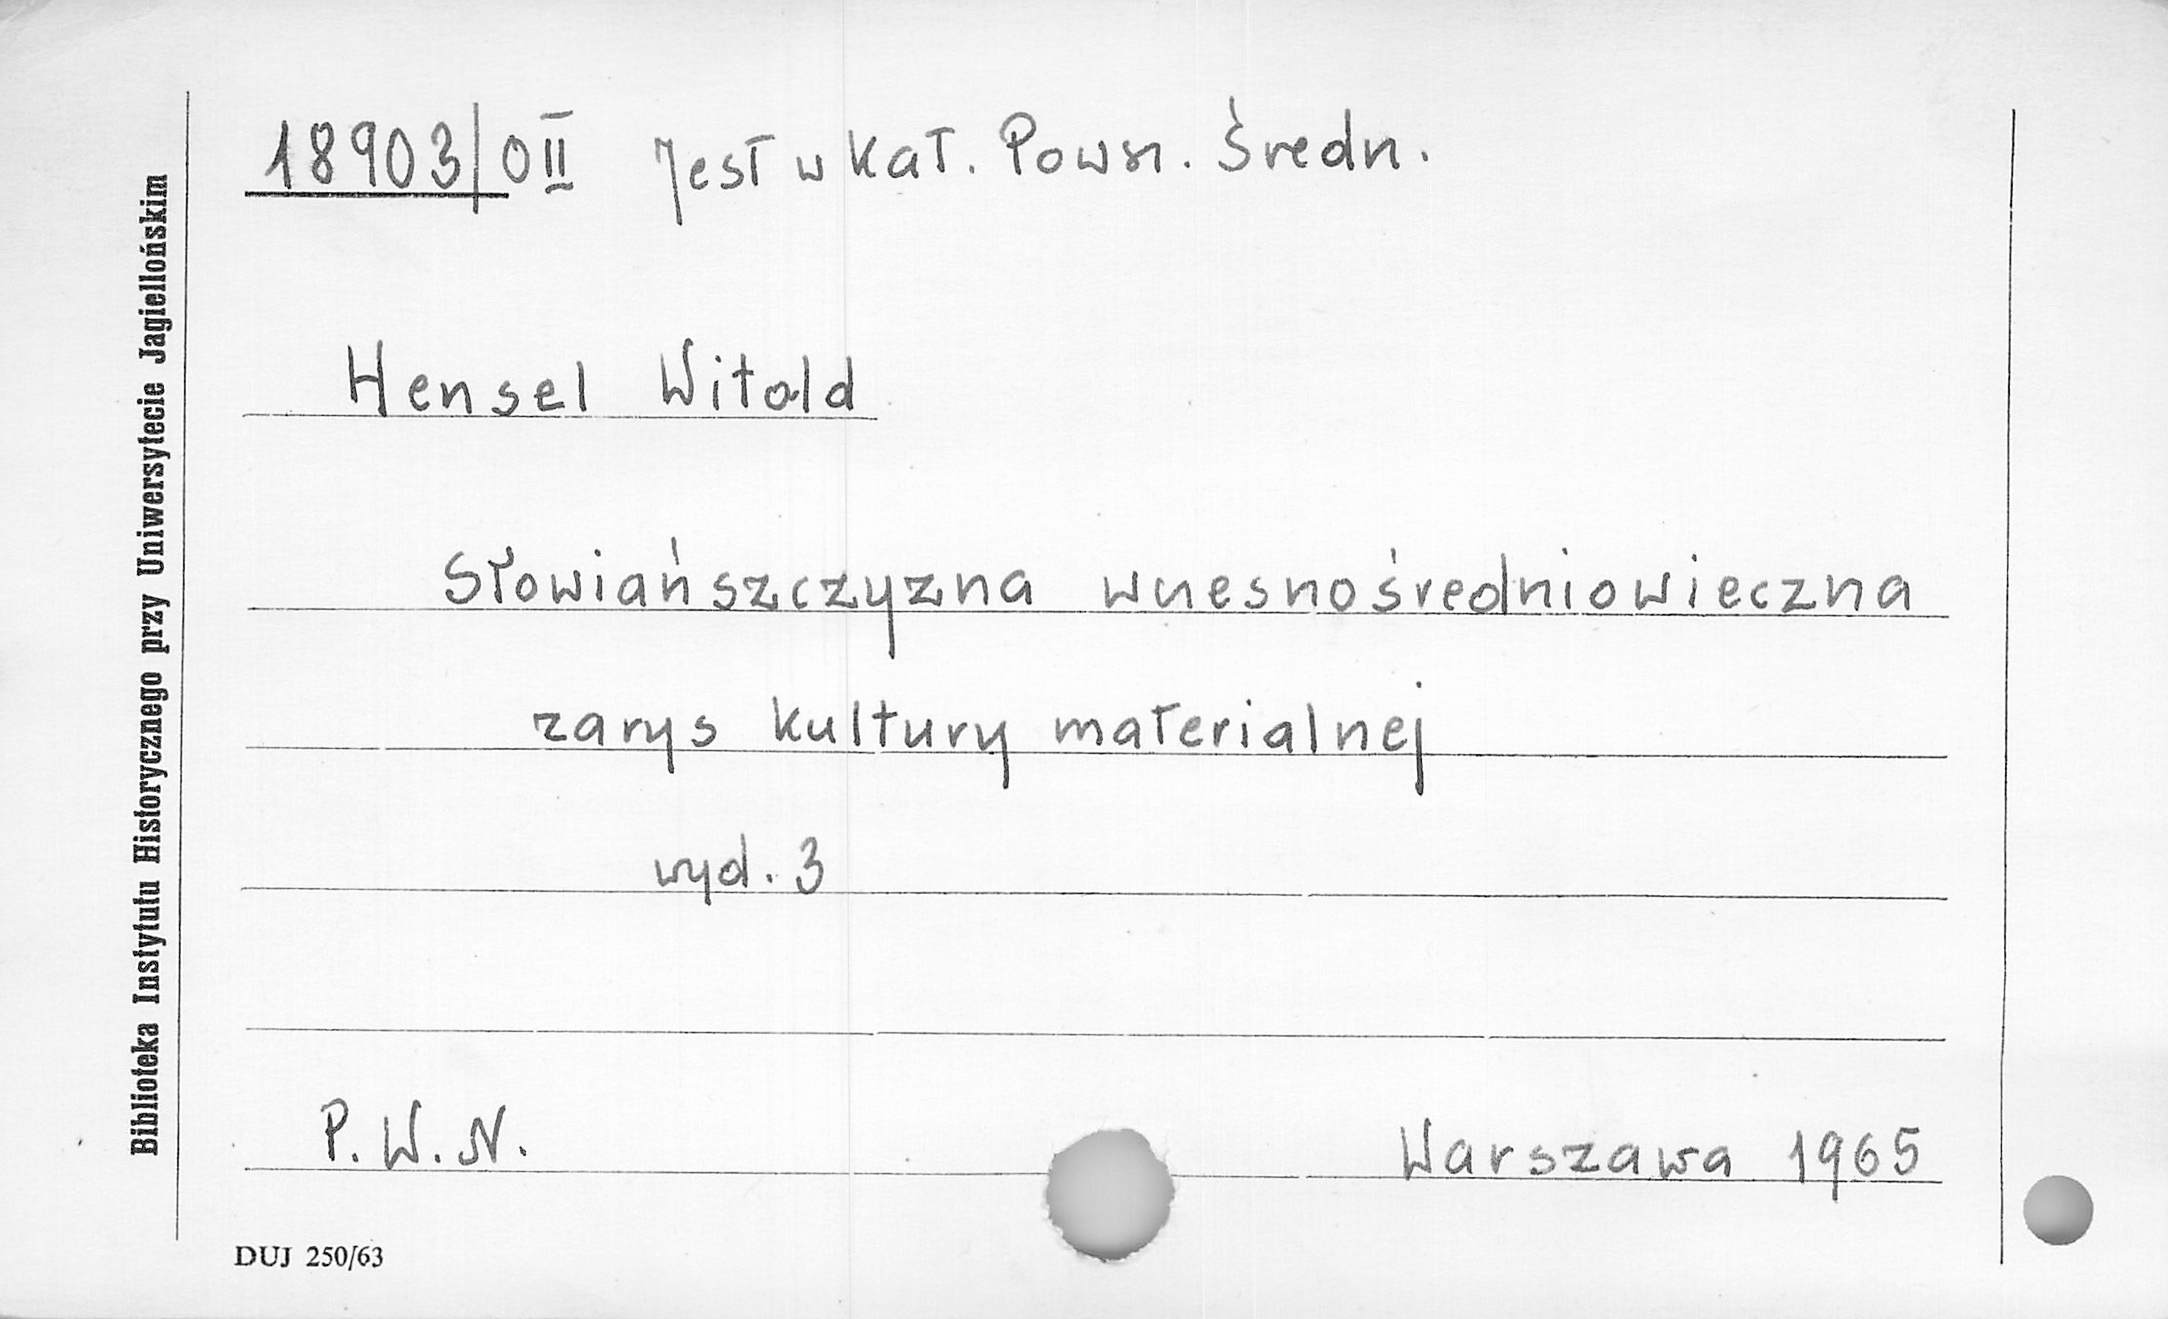 18903/0II Jest w kat. Powsz. Średn.
Hensel Witold
Słowiańszczyzna wczesnośredniowieczna
zarys kultury materialnej
wyd. 3
P.W.N. Warszawa 1965
DUJ 250/63
Biblioteka Instytutu Historycznego przy Uniwersytecie Jagiellońskim